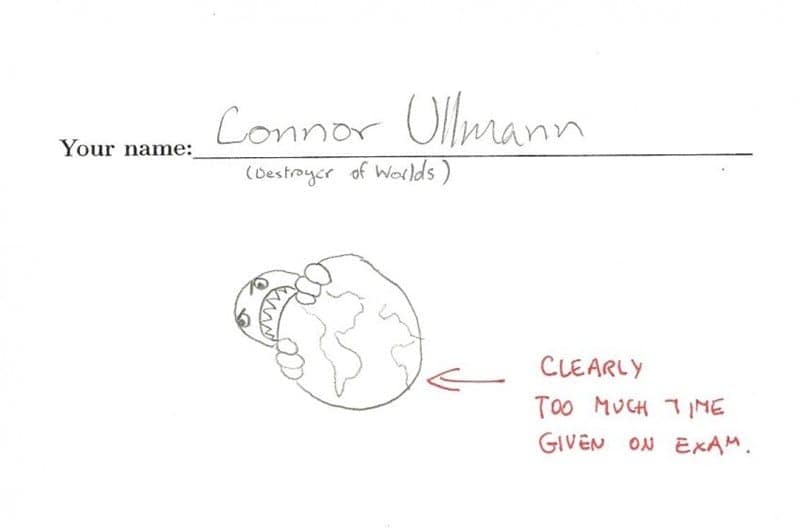 Your name: Connor Ullmann
(Destroyer of Worlds)
CLEARLY
TOO MUCH TIME
GIVEN ON EXAM.